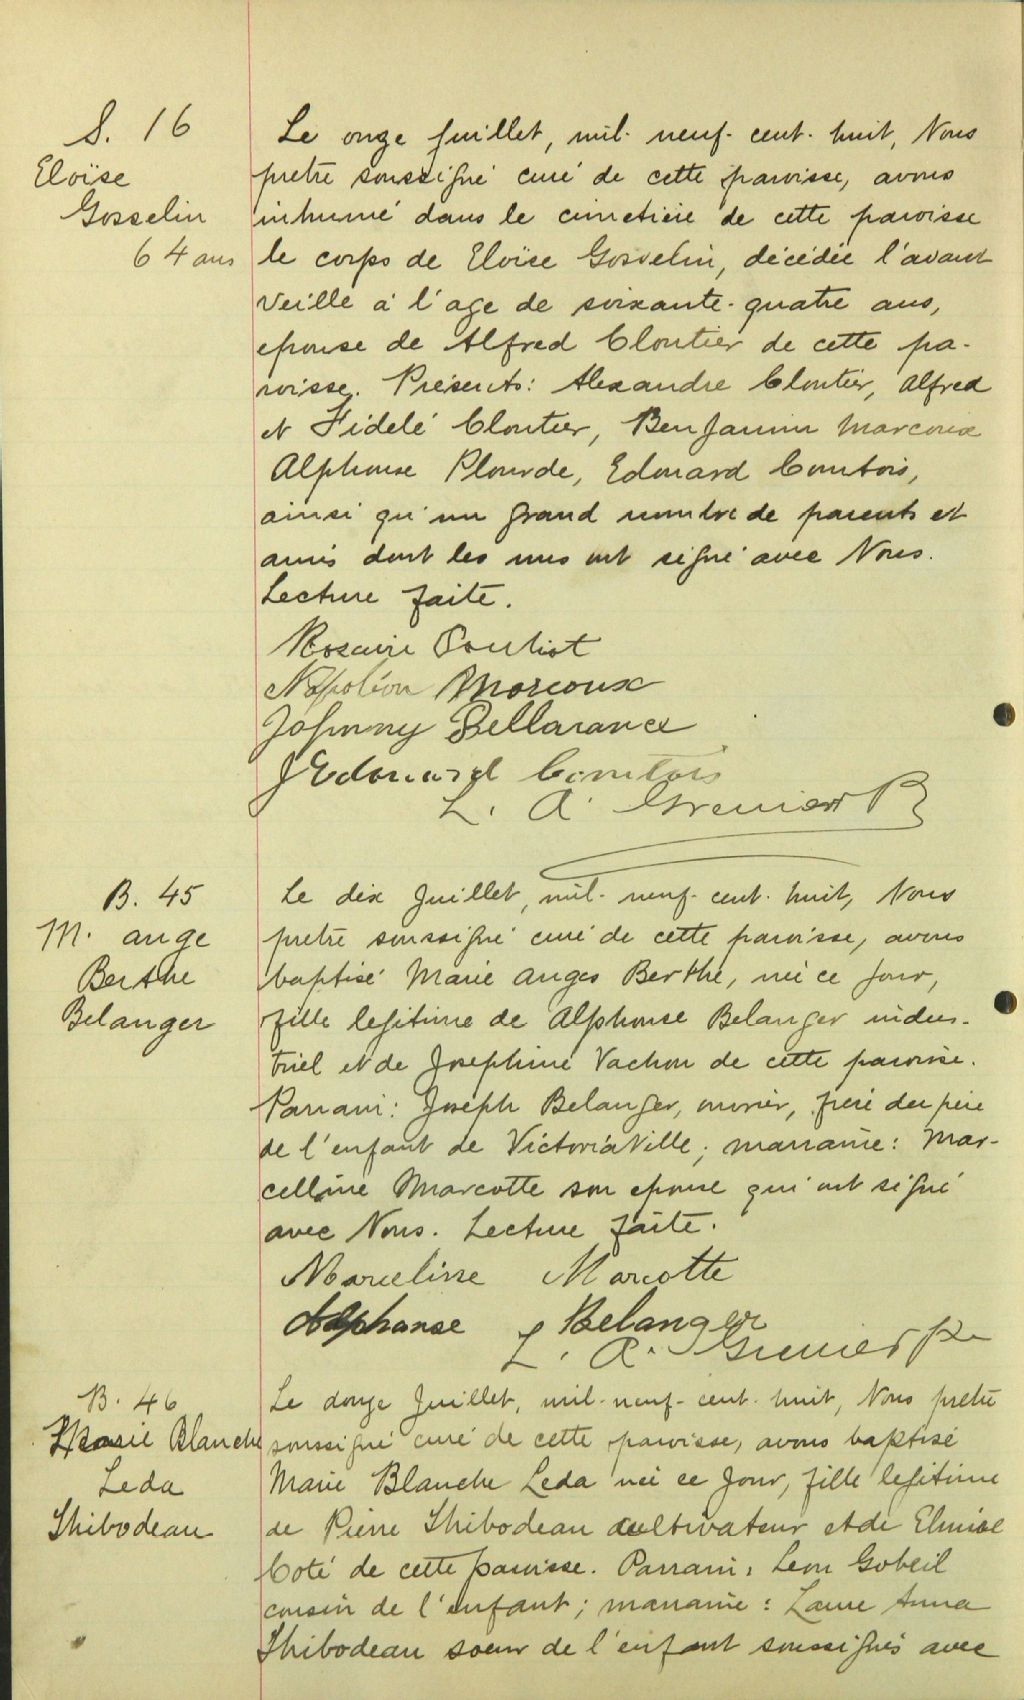 S. 16
Eloïse
Gosselin
64 ans
Le onze Juillet, mil. neuf. cent. huit, Nous
pretre soussigné curé de cette paroisse, avons
inhumé dans le cimetière de cette paroisse
le corps de Eloïse Gosselin, décédée l'avant
veille à l'age de soixante. quatre ans,
epouse de Alfred Cloutier de cette pa-
roisse. Présents: Alexandre Cloutier, Alfred
et Fidelé Cloutier, Benjamin Marcoux
Alphonse Plourde, Edouard Comtois,
ainsi qu'un grand nombre de parents et
amis dont les uns ont signé avec Nous.
Lecture faite.
Rosaire Pouliot
Napoléon Marcoux
Johnny Bellavance
J Edouard Comtois
L. A. Grenier Ptr
B. 45
M. ange
Berthe
Belanger
Le dix Juillet, mil. neuf. cent. huit, Nous
pretre soussigné curé de cette paroisse, avons
baptisé Marie Anges Berthe, née ce jour,
fille legitime de Alphonse Belanger indus-
triel et de Josephine Vachon de cette paroisse.
Parrain: Joseph Belanger, ouvrier, frere du père
de l'enfant de VictoriaVille; marraine: Mar-
celline Marcotte son epouse qui ont signé
avec Nous. Lecture faite.
Marcelinne Marcotte
Alphonse Belanger
L. A. Grenier Ptr
B. 46
Marie Blanche
Leda
Thibodeau
Le douze Juillet, mil. neuf. cent. huit, Nous pretre
soussigné curé de cette paroisse, avons baptisé
Marie Blanche Leda née ce Jour, fille legitime
de Pierre Thibodeau cultivateur et de
Coté de cette paroisse. Parrain: Leon Gobeil
cousin de l'enfant; marraine: Laure Anna
Thibodeau soeur de l'enfant soussignés avec